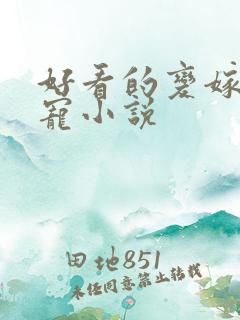 好看的变嫁
宠小说
田地851
未经同意禁止转载